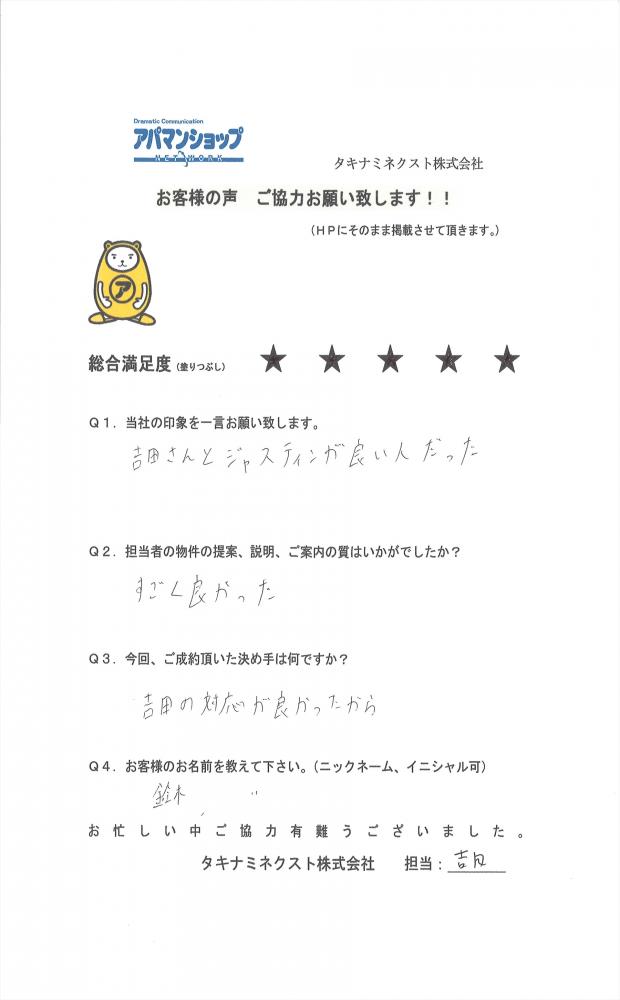 Dramatic Communication
アパマンショップ
NETWORK
タキナミネクスト株式会社
お客様の声　ご協力お願い致します！！
（ＨＰにそのまま掲載させて頂きます。）
ア
総合満足度（塗りつぶし） ★ ★ ★ ★ ★
Ｑ１．当社の印象を一言お願い致します。
吉田さんとジャスティンが良い人だった
Ｑ２．担当者の物件の提案、説明、ご案内の質はいかがでしたか？
すごく良かった
Ｑ３．今回、ご成約頂いた決め手は何ですか？
吉田の対応が良かったから
Ｑ４．お客様のお名前を教えて下さい。（ニックネーム、イニシャル可）
鈴木
お忙しい中ご協力有難うございました。
タキナミネクスト株式会社　担当：吉田